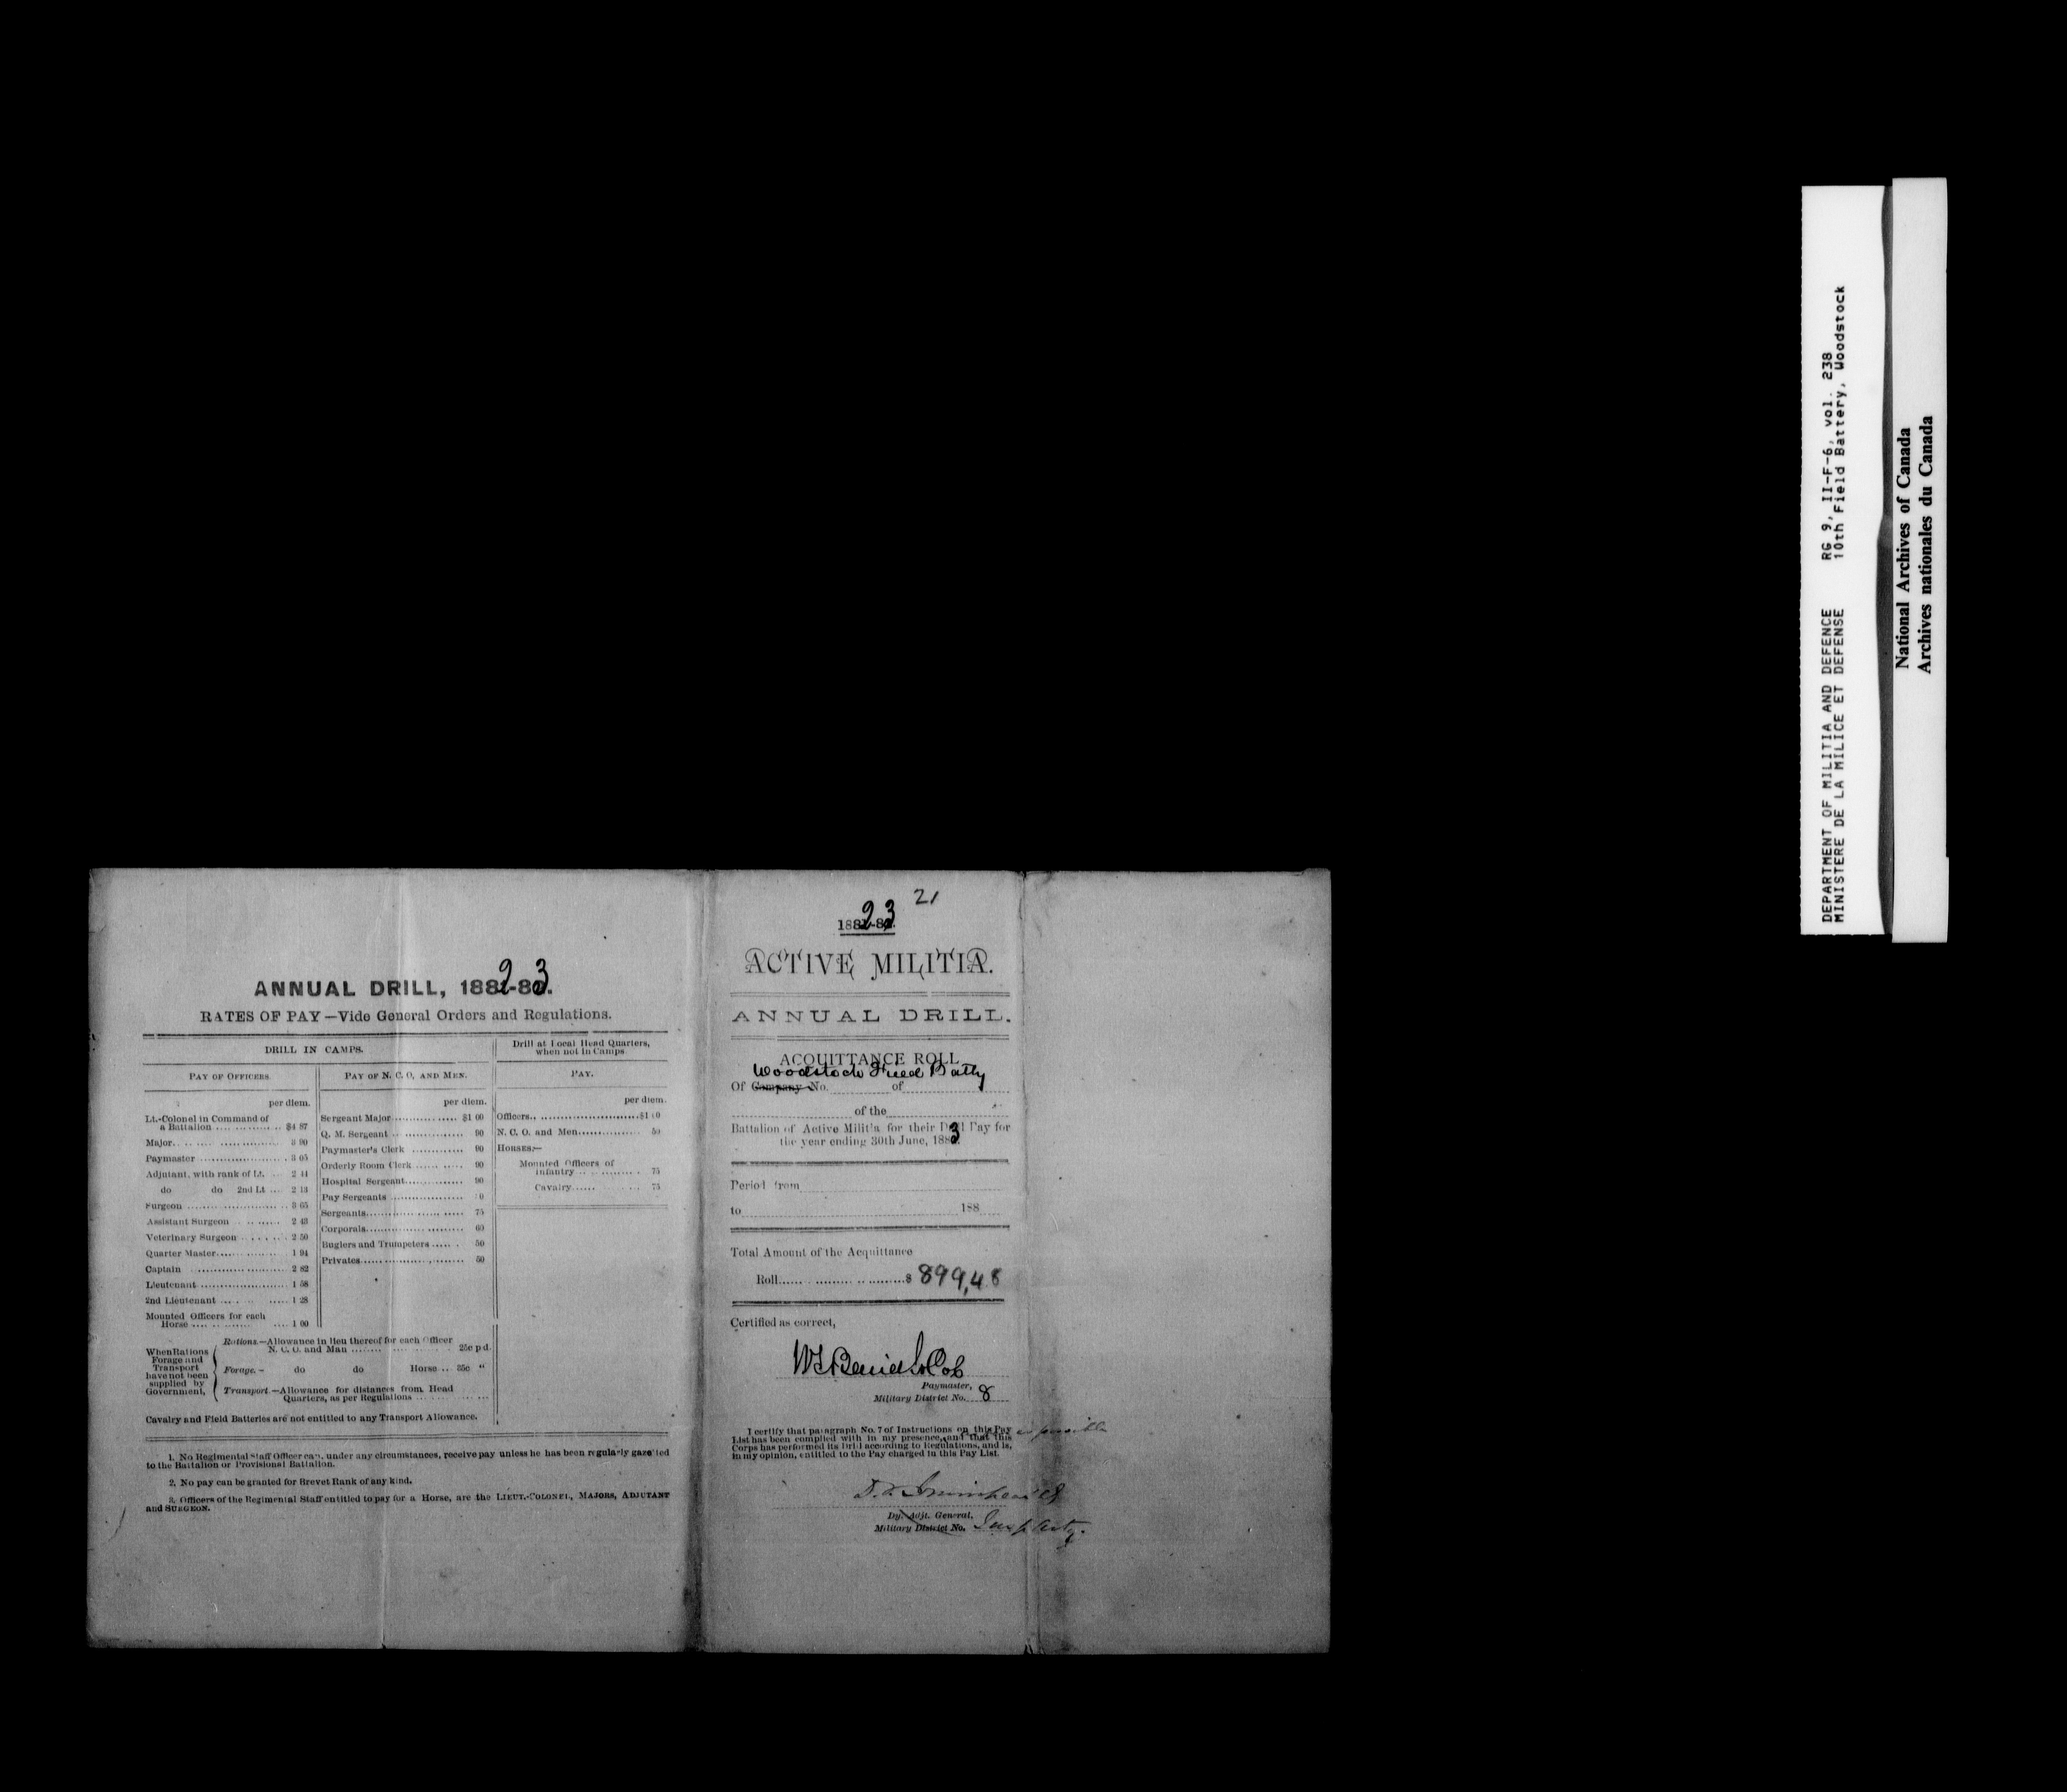 ANNUAL DRILL, 1882-83.
RATES OF PAY—Vide General Orders and Regulations.
DRILL IN CAMPS.
Drill at Local Head Quarters,
when not in Camps
PAY OF OFFICERS
PAY OF N. C. O. AND MEN.
PAY.
per diem.
Lt.-Colonel in Command of
a Battalion $4 87
Major 3 90
Paymaster 3 05
Adjutant, with rank of Lt. 2 44
do do 2nd Lt 2 13
Surgeon 3 65
Assistant Surgeon 2 43
Veterinary Surgeon 2 50
Quarter Master 1 94
Captain 2 82
Lieutenant 1 58
2nd Lieutenant 1 28
Mounted Officers for each
Horse 1 00
per diem.
Sergeant Major $1 00
Q. M. Sergeant 90
Paymaster's Clerk 90
Orderly Room Clerk 90
Hospital Sergeant 90
Pay Sergeants
Sergeants 75
Corporals 60
Buglers and Trumpeters 50
Privates 50
per diem.
Officers
N. C. O. and Men 50
HORSES:—
Mounted Officers of
Infantry 75
Cavalry 75
When Rations
Forage and
Transport
have not been
supplied by
Government,
Rations.—Allowance in lieu thereof for each Officer
N. C. O. and Man 25c p d.
Forage.— do do Horse 35c "
Transport—Allowance for distances from Head
Quarters, as per Regulations
Cavalry and Field Batteries are not entitled to any Transport Allowance.
1. No Regimental Staff Officer can, under any circumstances, receive pay unless he has been regularly gazetted
to the Battalion or Provisional Battalion.
2. No pay can be granted for Brevet Rank of any kind.
3. Officers of the Regimental Staff entitled to pay for a Horse, are the LIEUT.-COLONEL, MAJORS, ADJUTANT
and SURGEON.
21
1882-83.
ACTIVE MILITIA.
ANNUAL DRILL.
ACQUITTANCE ROLL
Woodstock Field Batty
Of Company No. of
of the
Battalion of Active Militia for their Drill Pay for
the year ending 30th June, 1883.
Period from
to 188
Total Amount of the Acquittance
Roll $ 899,48
Certified as correct,
Paymaster,
Military District No. 8
I certify that paragraph No. 7 of Instructions on this Pay
List has been complied with in my presence, and that this
Corps has performed its Drill according to Regulations, and is,
in my opinion, entitled to the Pay charged in this Pay List.
Dy. Adjt. General.
Military District No.
DEPARTMENT OF MILITIA AND DEFENCE RG 9, II-F-6, vol. 238
MINISTERE DE LA MILICE ET DEFENSE 10th Field Battery, Woodstock
National Archives of Canada
Archives nationales du Canada